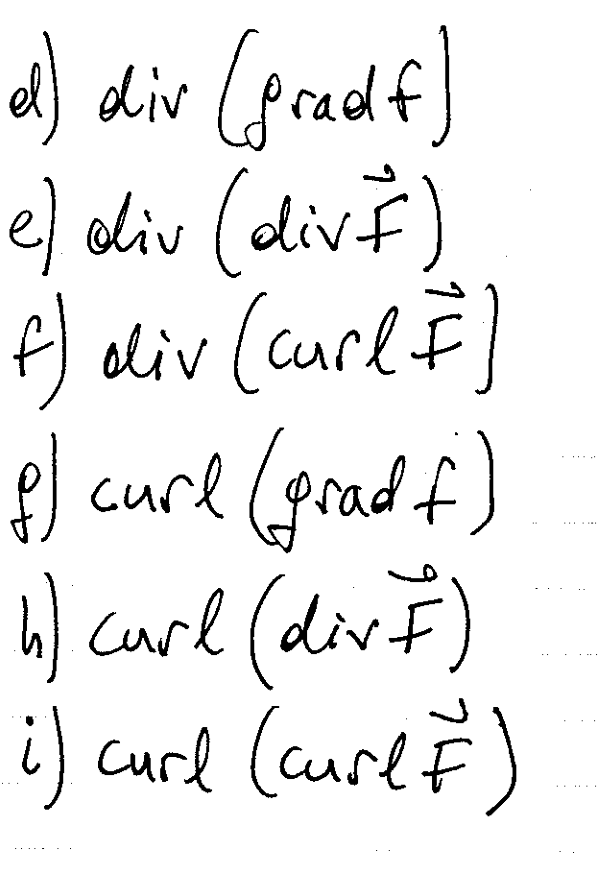 d) div (grad f)
e) div (div F⃗)
f) div (curl F⃗)
g) curl (grad f)
h) curl (div F⃗)
i) curl (curl F⃗)